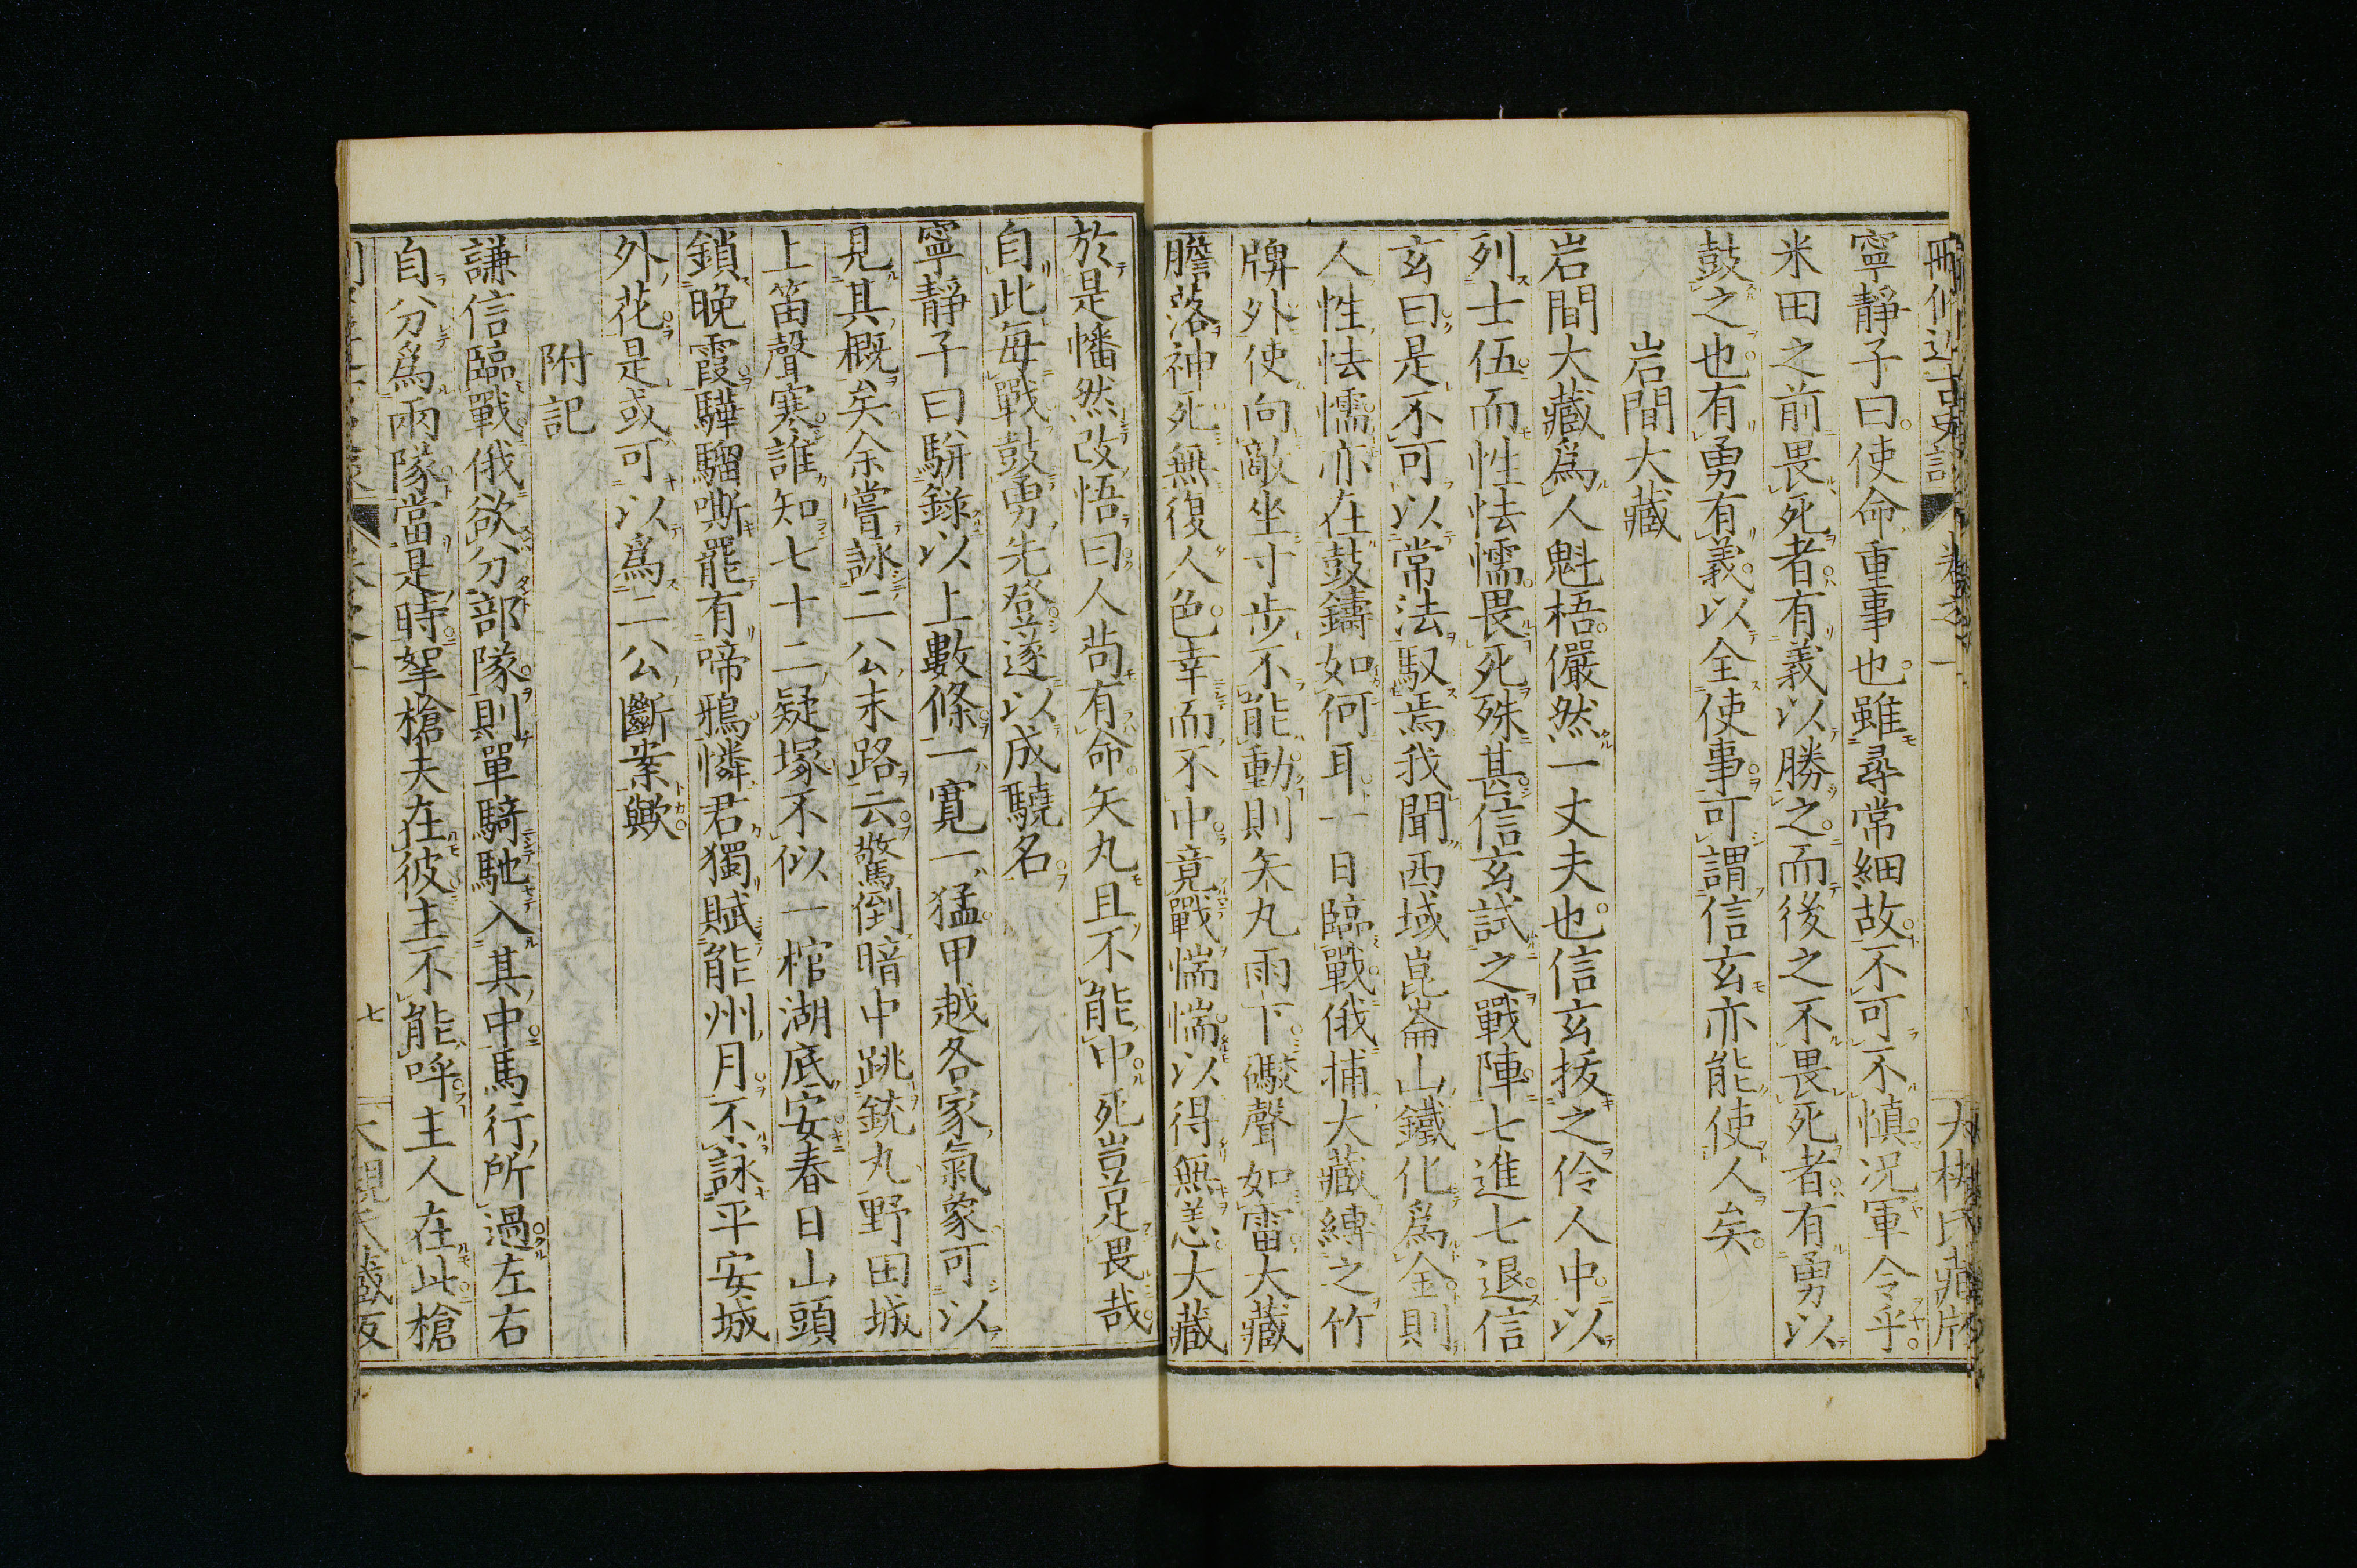 寧靜子曰使命重事也雖尋常細故不可不愼况軍令乎
米田之前畏死者有義以勝之而後之不畏死者有勇以
鼓之也有勇有義以全使事可謂信玄亦能使人矣
岩間大藏
岩間大藏爲人魁梧儼然一丈夫也信玄拔之伶人中以
列士伍而性怯懦畏死殊甚信玄試之戰陣七進七退信
玄曰是不可以常法馭焉我聞西域崑崙山鐵化爲金則
人性怯懦亦在鼓鑄如何耳一日臨戰俄捕大藏縛之竹
牌外使向敵坐寸步不能動則矢丸雨下礮聲如雷大藏
膽落神死無復人色幸而不中竟戰惴惴以得無恙大藏
於是幡然改悟曰人苟有命矢丸且不能中死豈足畏哉
自此每戰鼓勇先登遂以成驍名
寧靜子曰駢錄以上數條一寬一猛甲越各家氣象可以
見其槪矣余嘗詠二公末路云驚倒暗中跳銃丸野田城
上笛聲寒誰知七十二疑塚不似一棺湖底安春日山頭
鎖晩霞驊騮嘶罷有啼鴉憐君獨賦能州月不詠平安城
外花是或可以爲二公斷案歟
附記
謙信臨戰俄欲分部隊則單騎馳入其中馬行所過左右
自分爲兩隊當是時挐槍夫在彼主不能呼主人在此槍
七